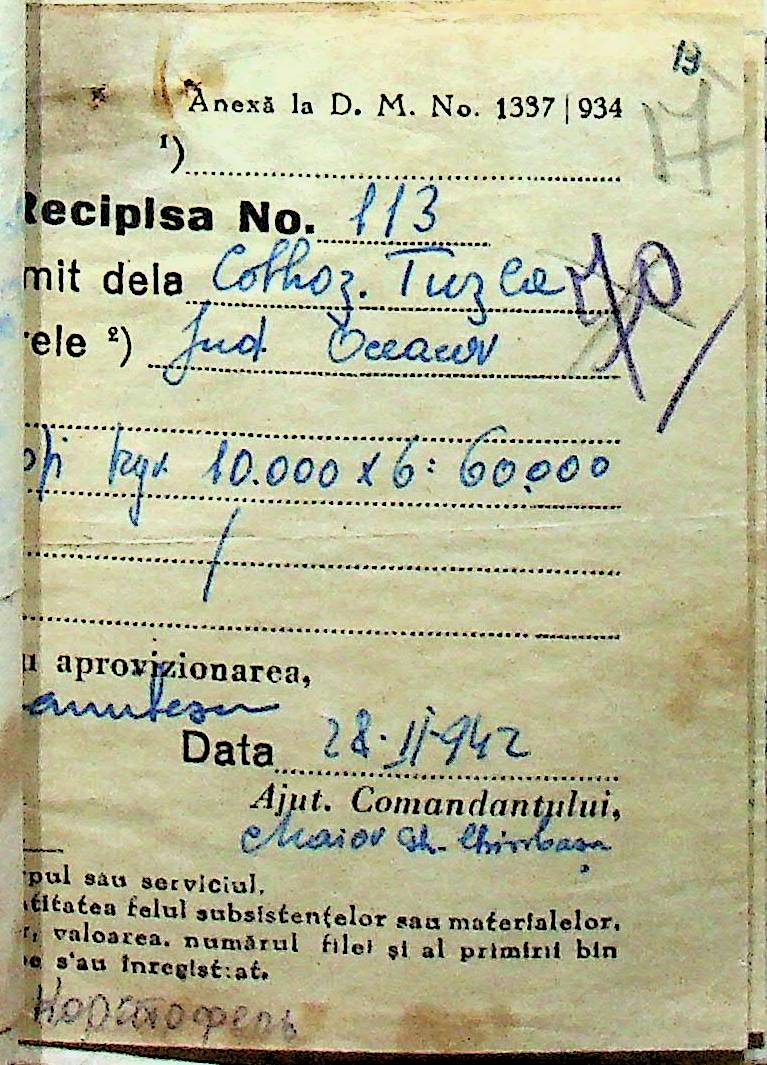 13
17
Anexă la D. M. No. 1337 | 934
¹)
Recipisa No. 113
mit dela Colhoz. Tuzla
70
ele ²) Jud. Oceacov
kgr. 10.000 x 6 : 60.000
aprovizionarea,
Data 28·II·942
Ajut. Comandantului,
Maior Gh.
pul sau serviciul.
titatea felul subsistențelor sau materialelor,
r, valoarea, numărul filei și al primirii bin
e s'au înregistrat.
Картофель